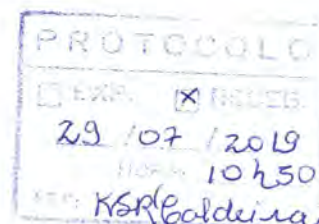 PROTOCOLO
EXP. RECEB.
29 / 07 / 2019
HORA: 10h50
KSR Caldeira